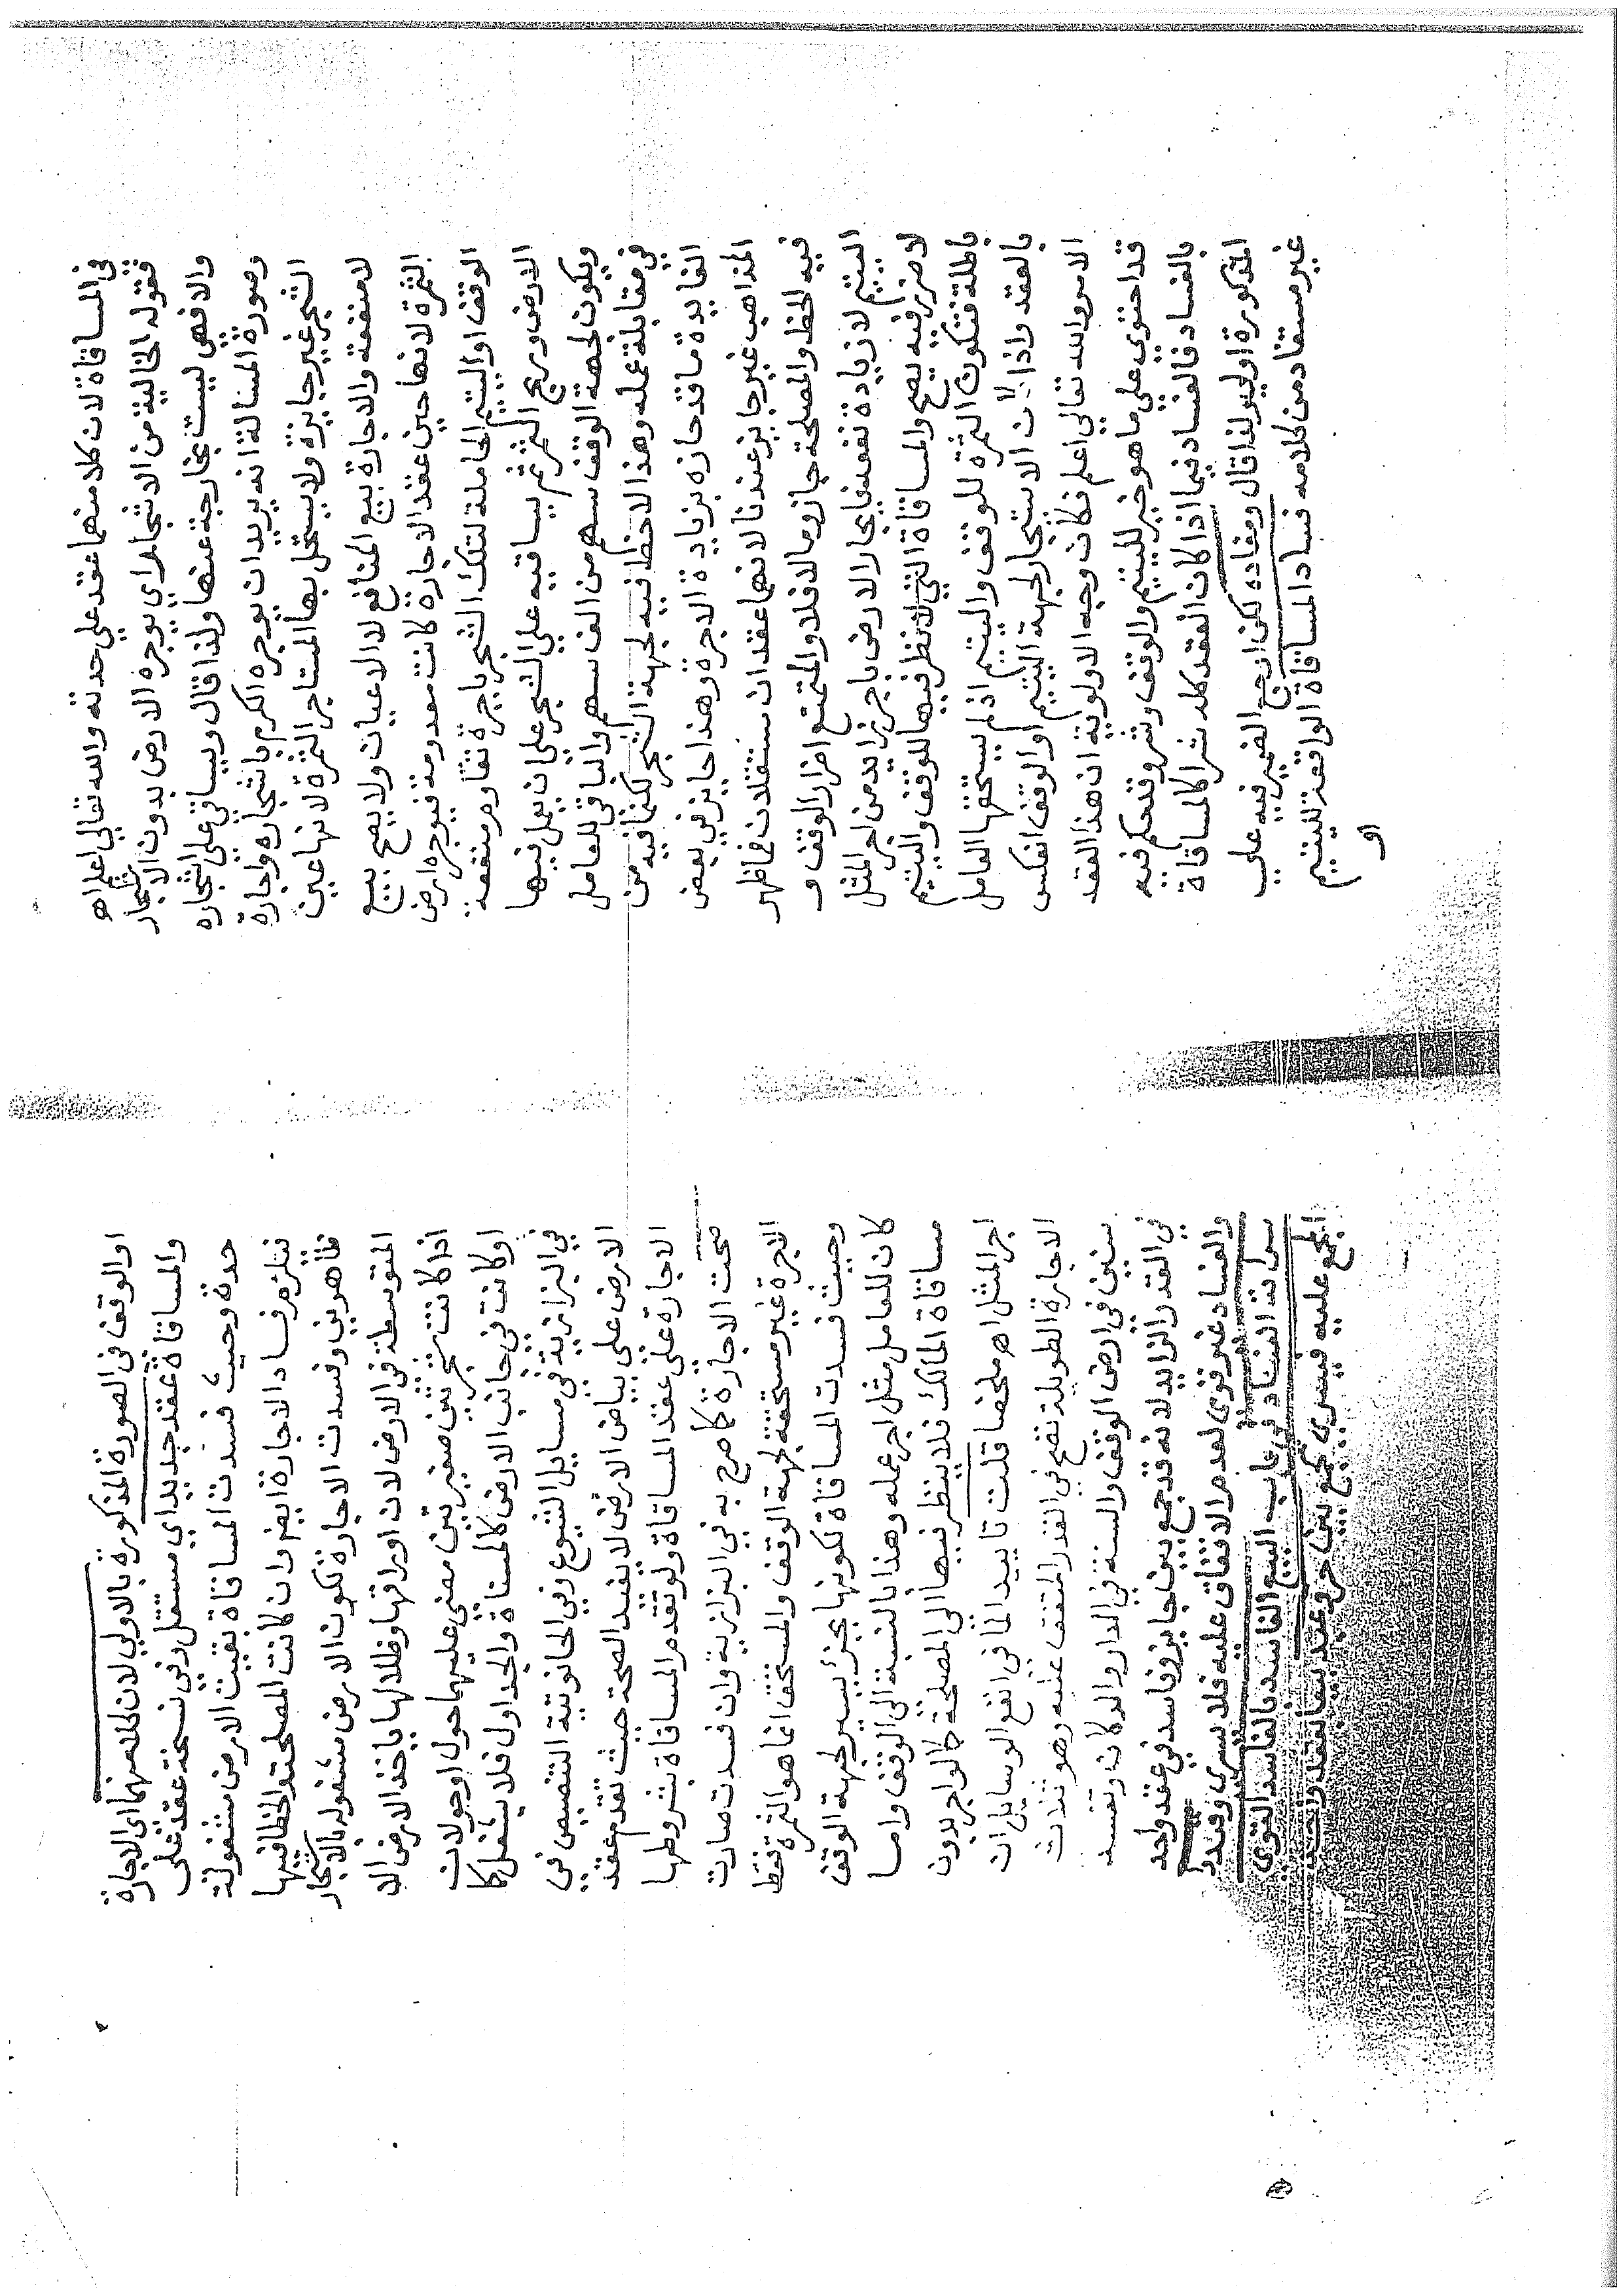 في المساقاة لان كلا منهما عقد علي حدته والله تعالي اعلم اه
فقوله الخالية من الاشجار اي يوجره الارض بدون الاشجار
والا فهي ليست بخارجة عنها ولذا قال ويساقي علي اشجاره
وصورة المسالة انه يريد ان يوجره الكرم باشجاره واجارة
الشجر غير جايزة ولا يستحل بها المستاجر الثمرة لانها عين
لا منفعة والاجارة بيع المنافع لا الاعيان ولا يصح بيع
الثمرة لانها حين عقد الاجارة كانت معدومة فيوجره ارض
الوقف او اليتيم الحاملة لتلك الشجر باجرة تقاوم منفعة
الارض وربع الثمر ثم يساقيه علي الشجر علي ان يعمل فيها
ويكون لجهة الوقف سهم من الف سهم والباقي للعامل
في مقابلة عمله وهذا لا حظ فيه لجهة الشجر لكن فيه من
الفايدة ما قد حازه بزيادة الاجرة وهذا جايز في بعض
المذاهب غير جايز عندنا لانهما عقدان مستقلان فما ظهر
فيه الحظ والمصلحة جاز وما لا فلا والممتنع اضرار الوقف و
اليتيم لا زيادة نفعه فايجار الارض باجر زايد من اجر المثل
لا ضرر فيه يصح والمساقاة التي لا نظر فيها للوقف واليتيم
باطلة فتكون الثمرة للوقف واليتيم اذ لم يستحقها العامل
بالعقد واذا كان الاستيجار لجهة اليتيم او الوقف انعكس
الامر والله تعالي اعلم فكان وجه الاولوية ان هذا العقد
قد احتوي علي ما هو خير لليتيم والوقف وشر وقد حكم فيه
بالفساد فالفساد فيما اذا كان العقد كله شرا كالمساقاة
المذكورة اولي ولذا قال ومفاده لكن ارجع الضمير فيه علي
غير مستفاد من كلامه فساد المساقاة الواقعة لليتيم
او
او الوقف في الصورة المذكورة بالاولي لان كلا منهما اي الاجارة
والمساقاة عقد جديد اي مستقل وفي نسخة عقد علي
حدة وحيث فسدت المساقاة بقيت الارض مشغولة
فيلزم فساد الاجارة ايضا وان كانت المصلحة والحظ فيها
ظاهرين وفسدت الاجارة لكون الارض مشغولة بالاشجار
المتوسطة في الارض لان اوراقها وظلالها ياخذ الارض الا
اذا كانت شجرتين صغيرتين مضي عليهما حول او حولان
او كانت في جانب الارض كالمسناة والجداول فلا يشغل كما
في البزازية في مسايل الشيوع وفي الحانوتية التنصيص في
الارض علي بياض الارض لا يفيد الصحة حيث تقدم عقد
الاجارة علي عقد المساقاة ولو تقدم المساقاة بشروطها
صحت الاجارة كما صرح به في البزازية وان فسدت صارت
الاجرة غير مستحقة لجهة الوقف والمستحق انما هو الثمرة فقط
وحيث فسدت المساقاة لكونها بجزء يسير لجهة الوقف
كان للعامل مثل اجر عمله وهذا بالنسبة الي الوقف واما
مساقاة المالك فلا ينظر فيها الي المصلحة كما لو اجر بدون
اجر المثل اه ملخصا قلت تاييد الما في انفع الوسايل ان
الاجارة الطويلة تفسخ في القدر المتفق عليه وهو ثلاث
سنين في ارض الوقف والسنة في الدار والدكان وتفسد
في القدر الزايد لانه قد جمع بين جايز وفاسد في عقد واحد
والفساد غير قوي لعدم الاتفاق عليه فلا يسري وقد
سراية الفساد في باب البيع الفاسد بالفاسد القوي
المجمع عليه فيسري كجمع بين حر وعبد بيعا بعقد واحد